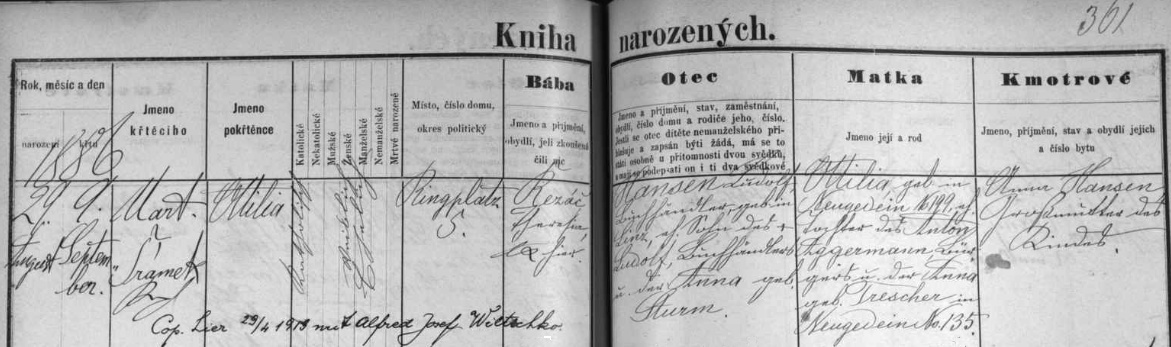 361
Kniha narozených.
Rok, měsíc a den
narození
křtu
1886
Jméno
křtěcího
Jmeno
pokřtěnce
Katolické
Nekatolické
Mužské
Ženské
Manželské
Nemanželské
Mrtvé narozené
Místo, číslo domu,
okres politický
Bába
Jmeno a přijmění,
obydlí, jeli zkoušená
čili nic
Otec
Jmeno a přijmění, stav, zaměstnání,
obydlí, číslo domu a rodiče jeho, číslo.
Jestli se otec dítěte nemanželského při-
hlašuje a zapsán býti žádá, má se to
státi osobně u přítomnosti dvou svědků,
a mají se podepsati on i ti dva svědkové
Matka
Jmeno její a rod
Kmotrové
Jmeno, přijmění, stav a obydlí jejich
a číslo bytu
29.
August
9.
Septem
ber.
Mart.
Šrámek
Ottilia
Katholisch
weiblich
Ehelich
Ringplatz
5.
Řezáč
Theresia,
hier.
Hansen Rudolf
Buchhändler geb. in
Linz, ehl. Sohn des
Rudolf, Buchhändlers
u. der Anna geb.
Sturm.
Ottilia, geb. in
Neugedein № 199, ehl.
Tochter des Anton
Eggermann Bür-
gers u. der Anna
geb. Trescher in
Neugedein No. 135.
Anna Hansen
Großmutter des
Kindes.
Cop. Lier 29/4 1913 mit Alfred Josef Wiltschko.